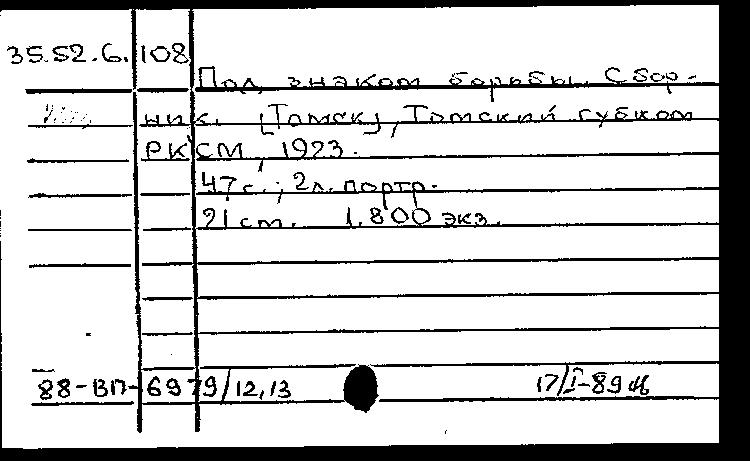 35.52.6.108
Под знаком борьбы. Сбор-
ник. [Томск], Томский губком
РКСМ, 1923.
47 с.; 2 л. портр.
21 см. 1.800 экз.
88-ВП-6979/12,13 17/I-89